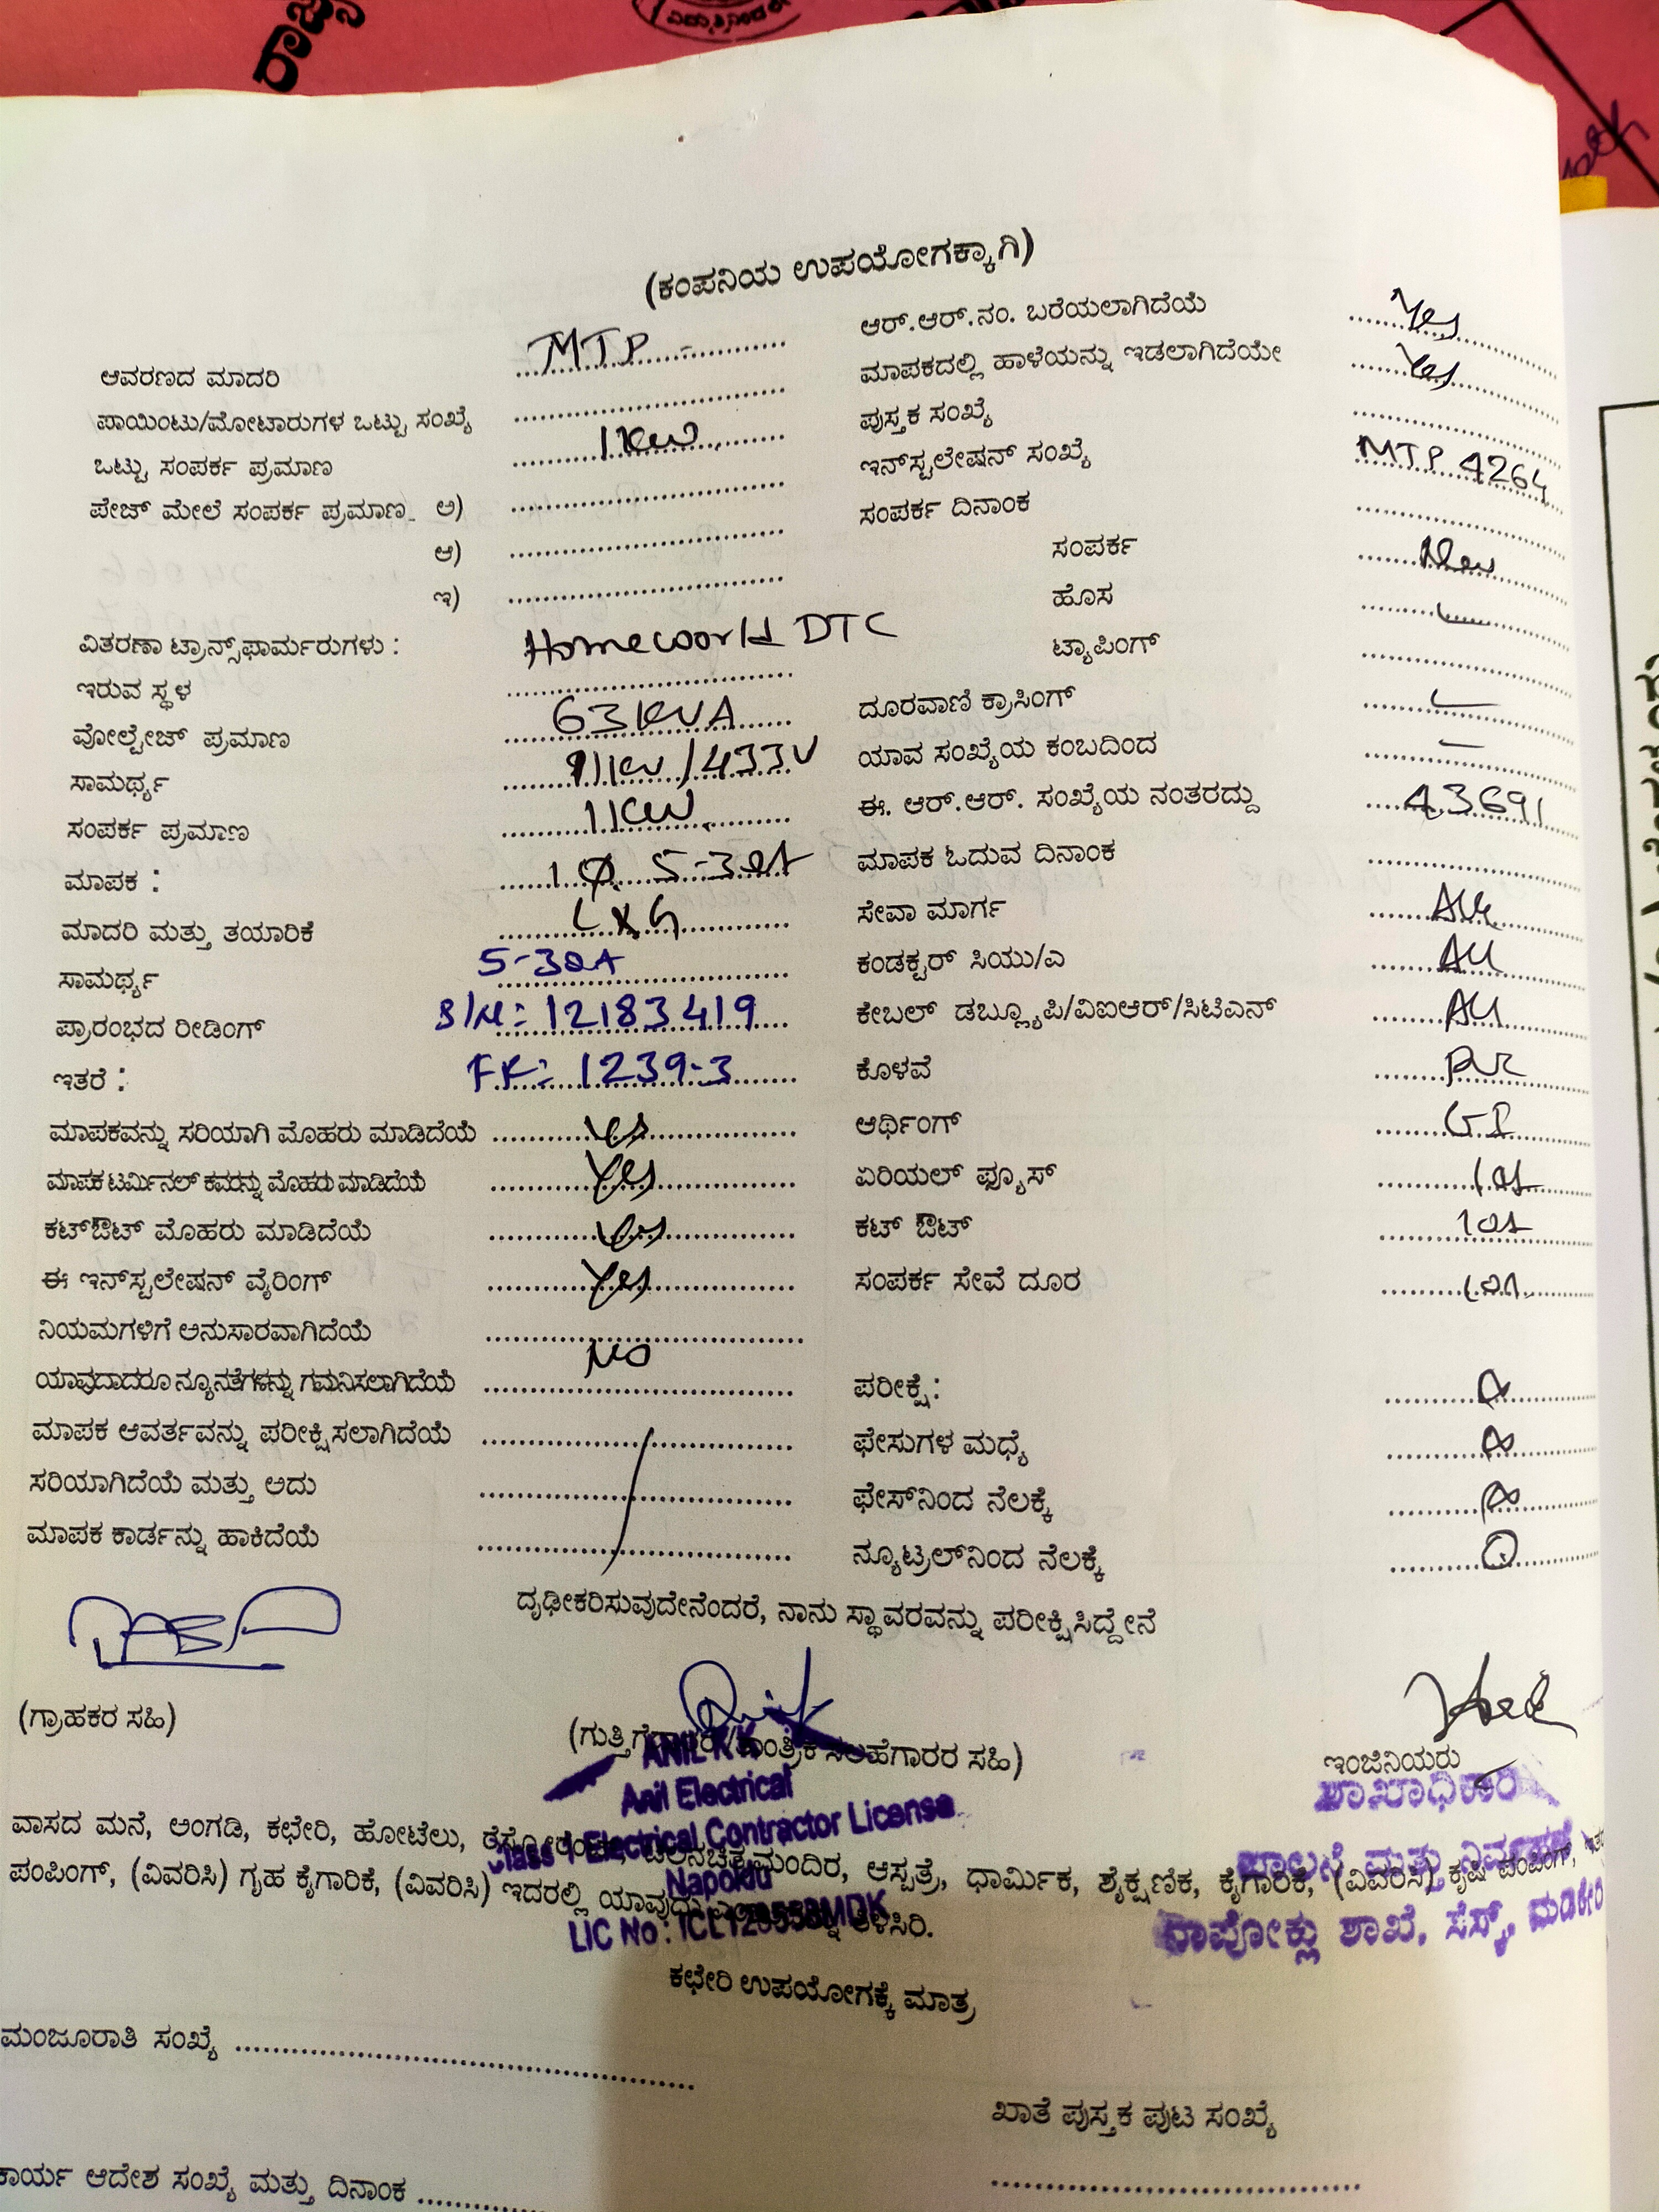 (ಕಂಪನಿಯ ಉಪಯೋಗಕ್ಕಾಗಿ)
ಆವರಣದ ಮಾದರಿ MTP
ಪಾಯಿಂಟು/ಮೋಟಾರುಗಳ ಒಟ್ಟು ಸಂಖ್ಯೆ
ಒಟ್ಟು ಸಂಪರ್ಕ ಪ್ರಮಾಣ 1 KW
ಪೇಜ್ ಮೇಲೆ ಸಂಪರ್ಕ ಪ್ರಮಾಣ ಅ)
ಆ)
ಇ)
ವಿತರಣಾ ಟ್ರಾನ್ಸ್‌ಫಾರ್ಮರುಗಳು : Homeworld DTC
ಇರುವ ಸ್ಥಳ
ವೋಲ್ಟೇಜ್ ಪ್ರಮಾಣ 63 KVA
ಸಾಮರ್ಥ್ಯ /433V
ಸಂಪರ್ಕ ಪ್ರಮಾಣ 1 KW
ಮಾಪಕ : 1Ø 5-30A
ಮಾದರಿ ಮತ್ತು ತಯಾರಿಕೆ L & G
ಸಾಮರ್ಥ್ಯ 5-30A
ಪ್ರಾರಂಭದ ರೀಡಿಂಗ್ 12183419
ಇತರೆ : 1239-3
ಮಾಪಕವನ್ನು ಸರಿಯಾಗಿ ಮೊಹರು ಮಾಡಿದೆಯೆ Yes
ಮಾಪಕ ಟರ್ಮಿನಲ್ ಕವರನ್ನು ಮೊಹರು ಮಾಡಿದೆಯೆ Yes
ಕಟ್‌ಔಟ್ ಮೊಹರು ಮಾಡಿದೆಯೆ Yes
ಈ ಇನ್‌ಸ್ಟಲೇಷನ್ ವೈರಿಂಗ್ Yes
ನಿಯಮಗಳಿಗೆ ಅನುಸಾರವಾಗಿದೆಯೆ
ಯಾವುದಾದರೂ ನ್ಯೂನತೆಗಳನ್ನು ಗಮನಿಸಲಾಗಿದೆಯೆ No
ಮಾಪಕ ಆವರ್ತವನ್ನು ಪರೀಕ್ಷಿಸಲಾಗಿದೆಯೆ
ಸರಿಯಾಗಿದೆಯೆ ಮತ್ತು ಅದು
ಮಾಪಕ ಕಾರ್ಡನ್ನು ಹಾಕಿದೆಯೆ
ಆರ್.ಆರ್.ನಂ. ಬರೆಯಲಾಗಿದೆಯೆ Yes
ಮಾಪಕದಲ್ಲಿ ಹಾಳೆಯನ್ನು ಇಡಲಾಗಿದೆಯೇ Yes
ಪುಸ್ತಕ ಸಂಖ್ಯೆ
ಇನ್‌ಸ್ಟಲೇಷನ್ ಸಂಖ್ಯೆ MTP 4264
ಸಂಪರ್ಕ ದಿನಾಂಕ
ಸಂಪರ್ಕ New
ಹೊಸ
ಟ್ಯಾಪಿಂಗ್
ದೂರವಾಣಿ ಕ್ರಾಸಿಂಗ್
ಯಾವ ಸಂಖ್ಯೆಯ ಕಂಬದಿಂದ
ಈ. ಆರ್.ಆರ್. ಸಂಖ್ಯೆಯ ನಂತರದ್ದು 43691
ಮಾಪಕ ಓದುವ ದಿನಾಂಕ
ಸೇವಾ ಮಾರ್ಗ
ಕಂಡಕ್ಟರ್ ಸಿಯು/ಎ
ಕೇಬಲ್ ಡಬ್ಲ್ಯೂಪಿ/ವಿಐಆರ್/ಸಿಟಿಎನ್
ಕೊಳವೆ
ಆರ್ಥಿಂಗ್
ಏರಿಯಲ್ ಫ್ಯೂಸ್
ಕಟ್ ಔಟ್
ಸಂಪರ್ಕ ಸೇವೆ ದೂರ
ಪರೀಕ್ಷೆ:
ಫೇಸುಗಳ ಮಧ್ಯೆ
ಫೇಸ್‌ನಿಂದ ನೆಲಕ್ಕೆ
ನ್ಯೂಟ್ರಲ್‌ನಿಂದ ನೆಲಕ್ಕೆ
ದೃಢೀಕರಿಸುವುದೇನೆಂದರೆ, ನಾನು ಸ್ಥಾವರವನ್ನು ಪರೀಕ್ಷಿಸಿದ್ದೇನೆ
(ಗ್ರಾಹಕರ ಸಹಿ)
ಸಹಿ)
ಇಂಜಿನಿಯರು
ANIL K K
Anil Electrical
Class 1 Electrical Contractor License
Napoklu
LIC No :
ಶಾಖಾಧಿಕಾರಿ
ವಾಸದ ಮನೆ, ಅಂಗಡಿ, ಕಛೇರಿ, ಹೋಟೆಲು, ಆಸ್ಪತ್ರೆ, ಧಾರ್ಮಿಕ, ಶೈಕ್ಷಣಿಕ, ಕೈಗಾರಿಕೆ, (ವಿವರಿಸಿ) ಕೃಷಿ ಪಂಪಿಂಗ್,
ಪಂಪಿಂಗ್, (ವಿವರಿಸಿ) ಗೃಹ ಕೈಗಾರಿಕೆ, (ವಿವರಿಸಿ) ಇದರಲ್ಲಿ ತಿಳಿಸಿರಿ.
ಶಾಖೆ, ಸೆಸ್ಕ್, ಮಡಿಕೇರಿ
ಕಛೇರಿ ಉಪಯೋಗಕ್ಕೆ ಮಾತ್ರ
ಮಂಜೂರಾತಿ ಸಂಖ್ಯೆ
ಖಾತೆ ಪುಸ್ತಕ ಪುಟ ಸಂಖ್ಯೆ
ಕಾರ್ಯ ಆದೇಶ ಸಂಖ್ಯೆ ಮತ್ತು ದಿನಾಂಕ